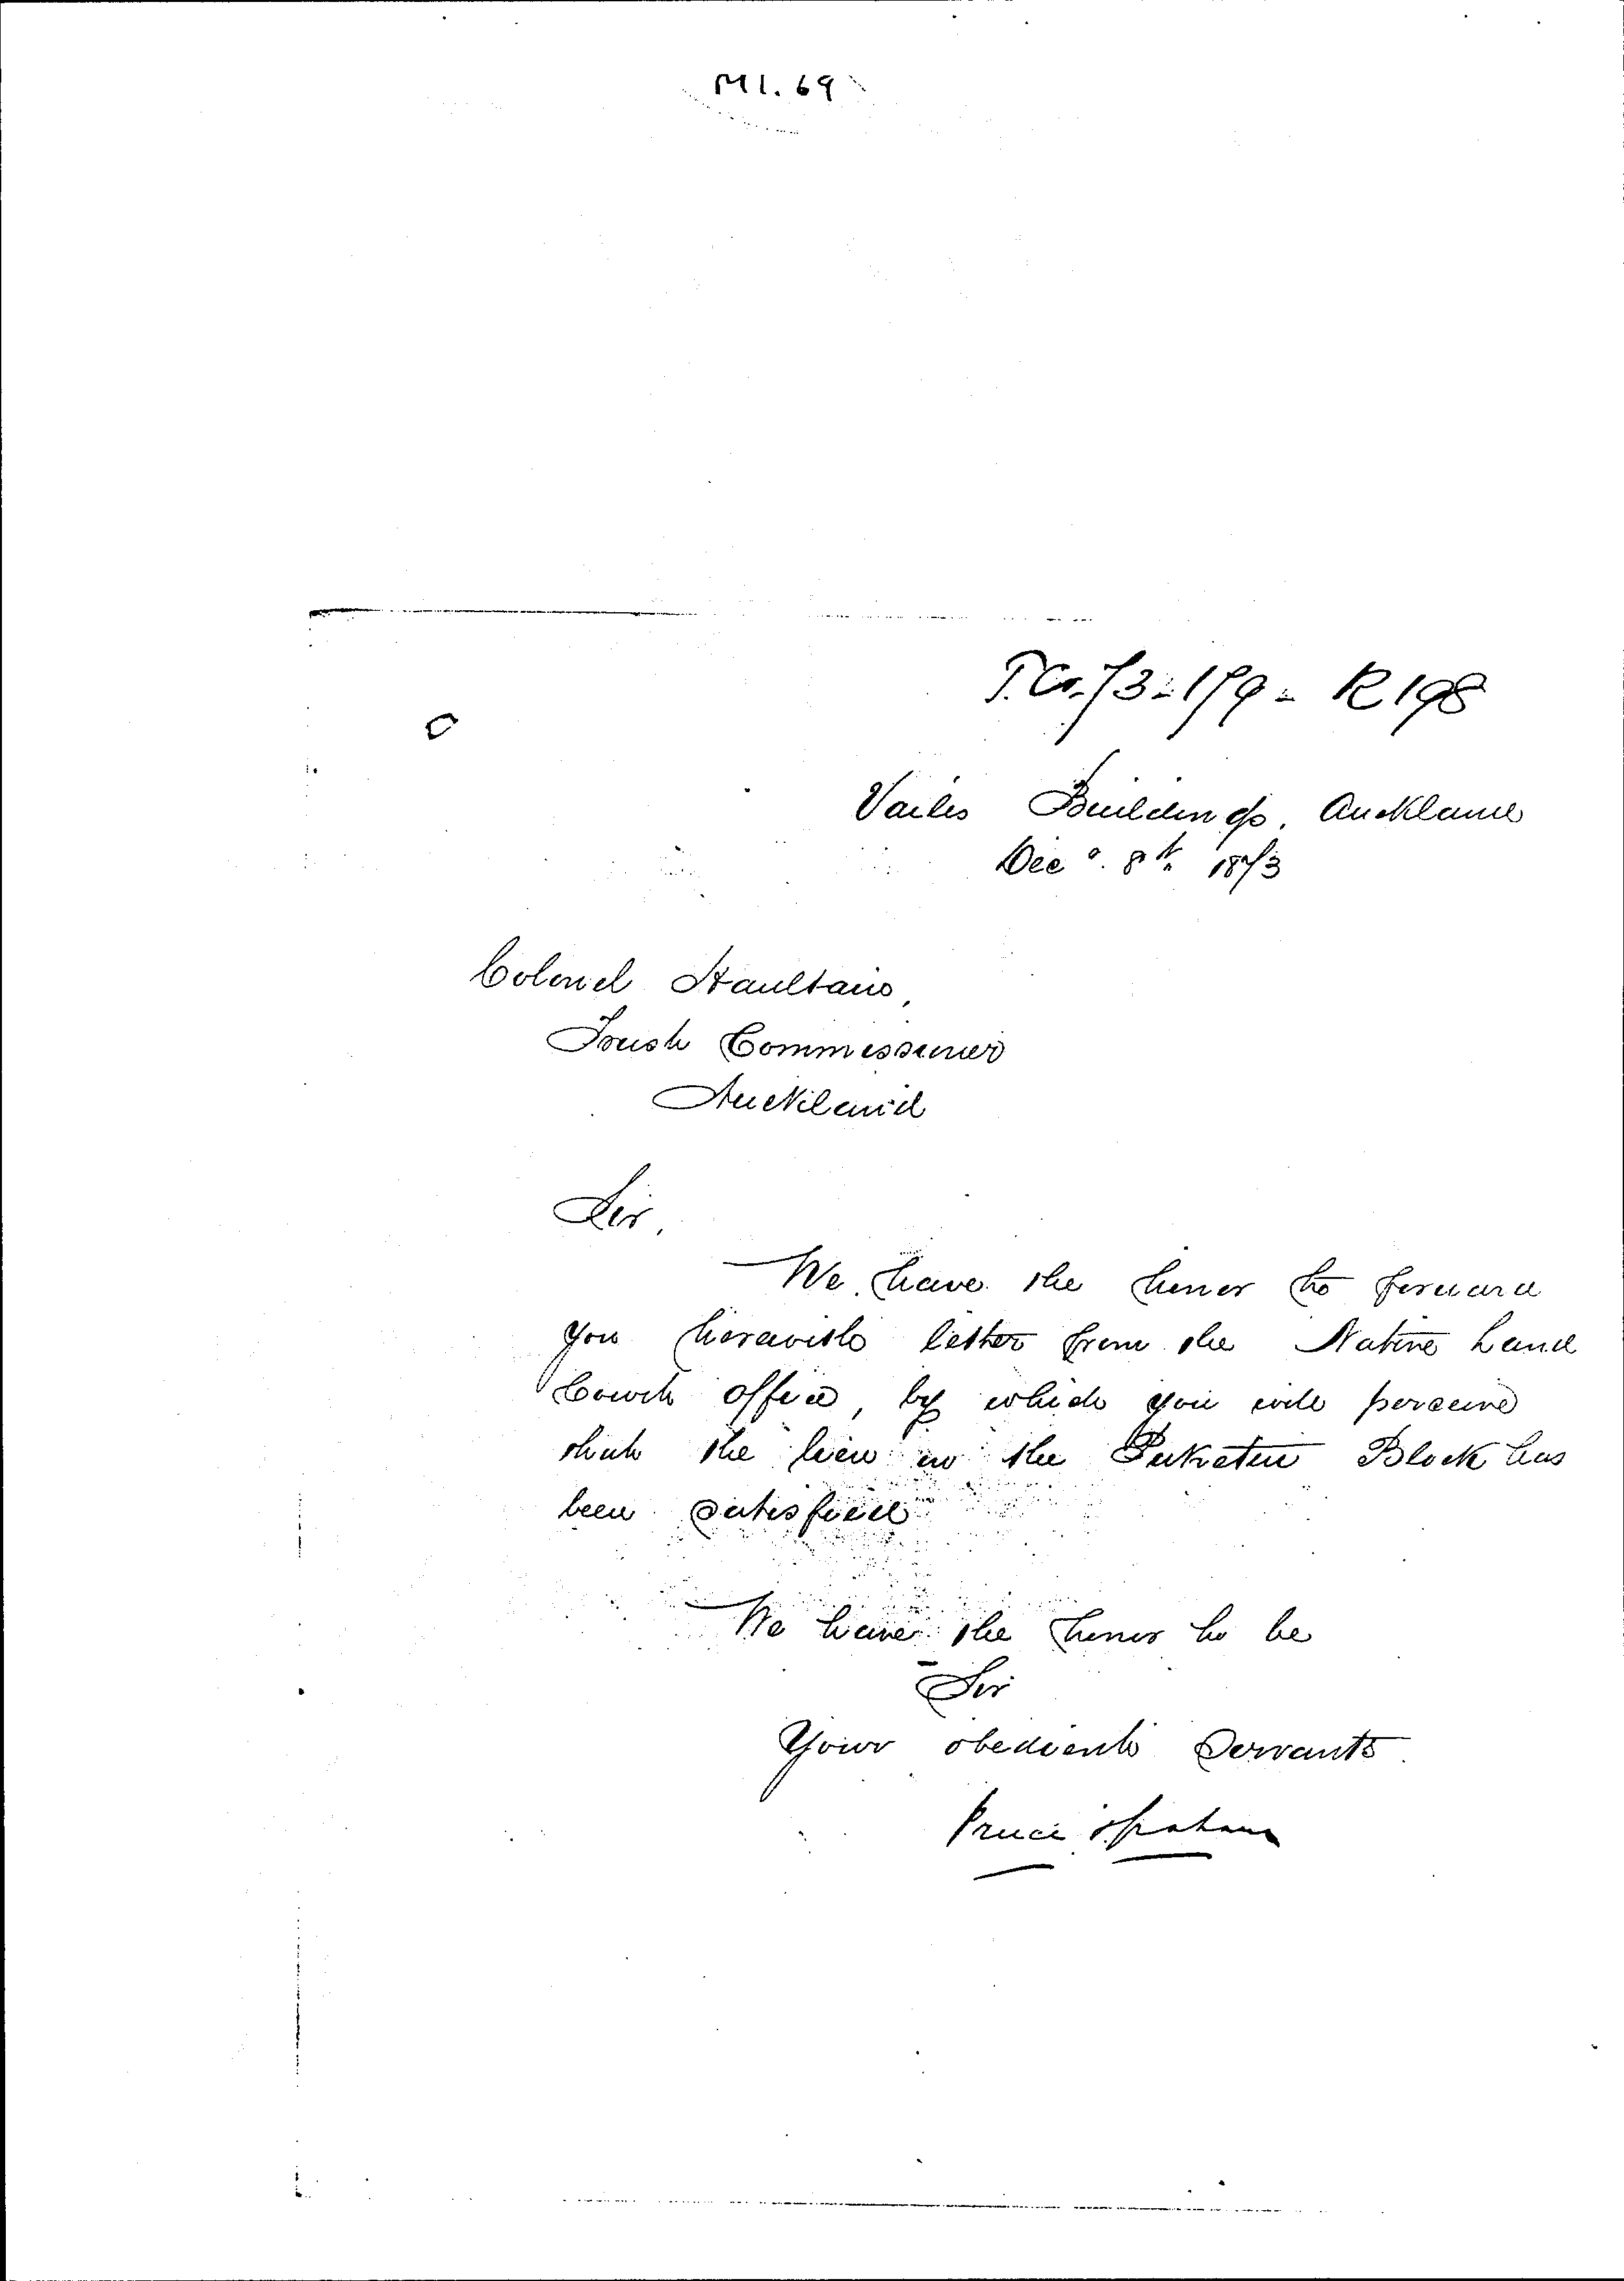 M1.69
T.C. 73-179 - R198
Vailes Buildings. Auckland
Dec r. 8th 1873
Colonel Haultain,
Trust Commissioner
Auckland
Sir,
We have the honor to forward
you herewith letter from the Native Land
Court office, by which you will perceive
that the lien on the Puketui Block has
been satisfied
We have the honor to be
Sir
Your obedient Servants